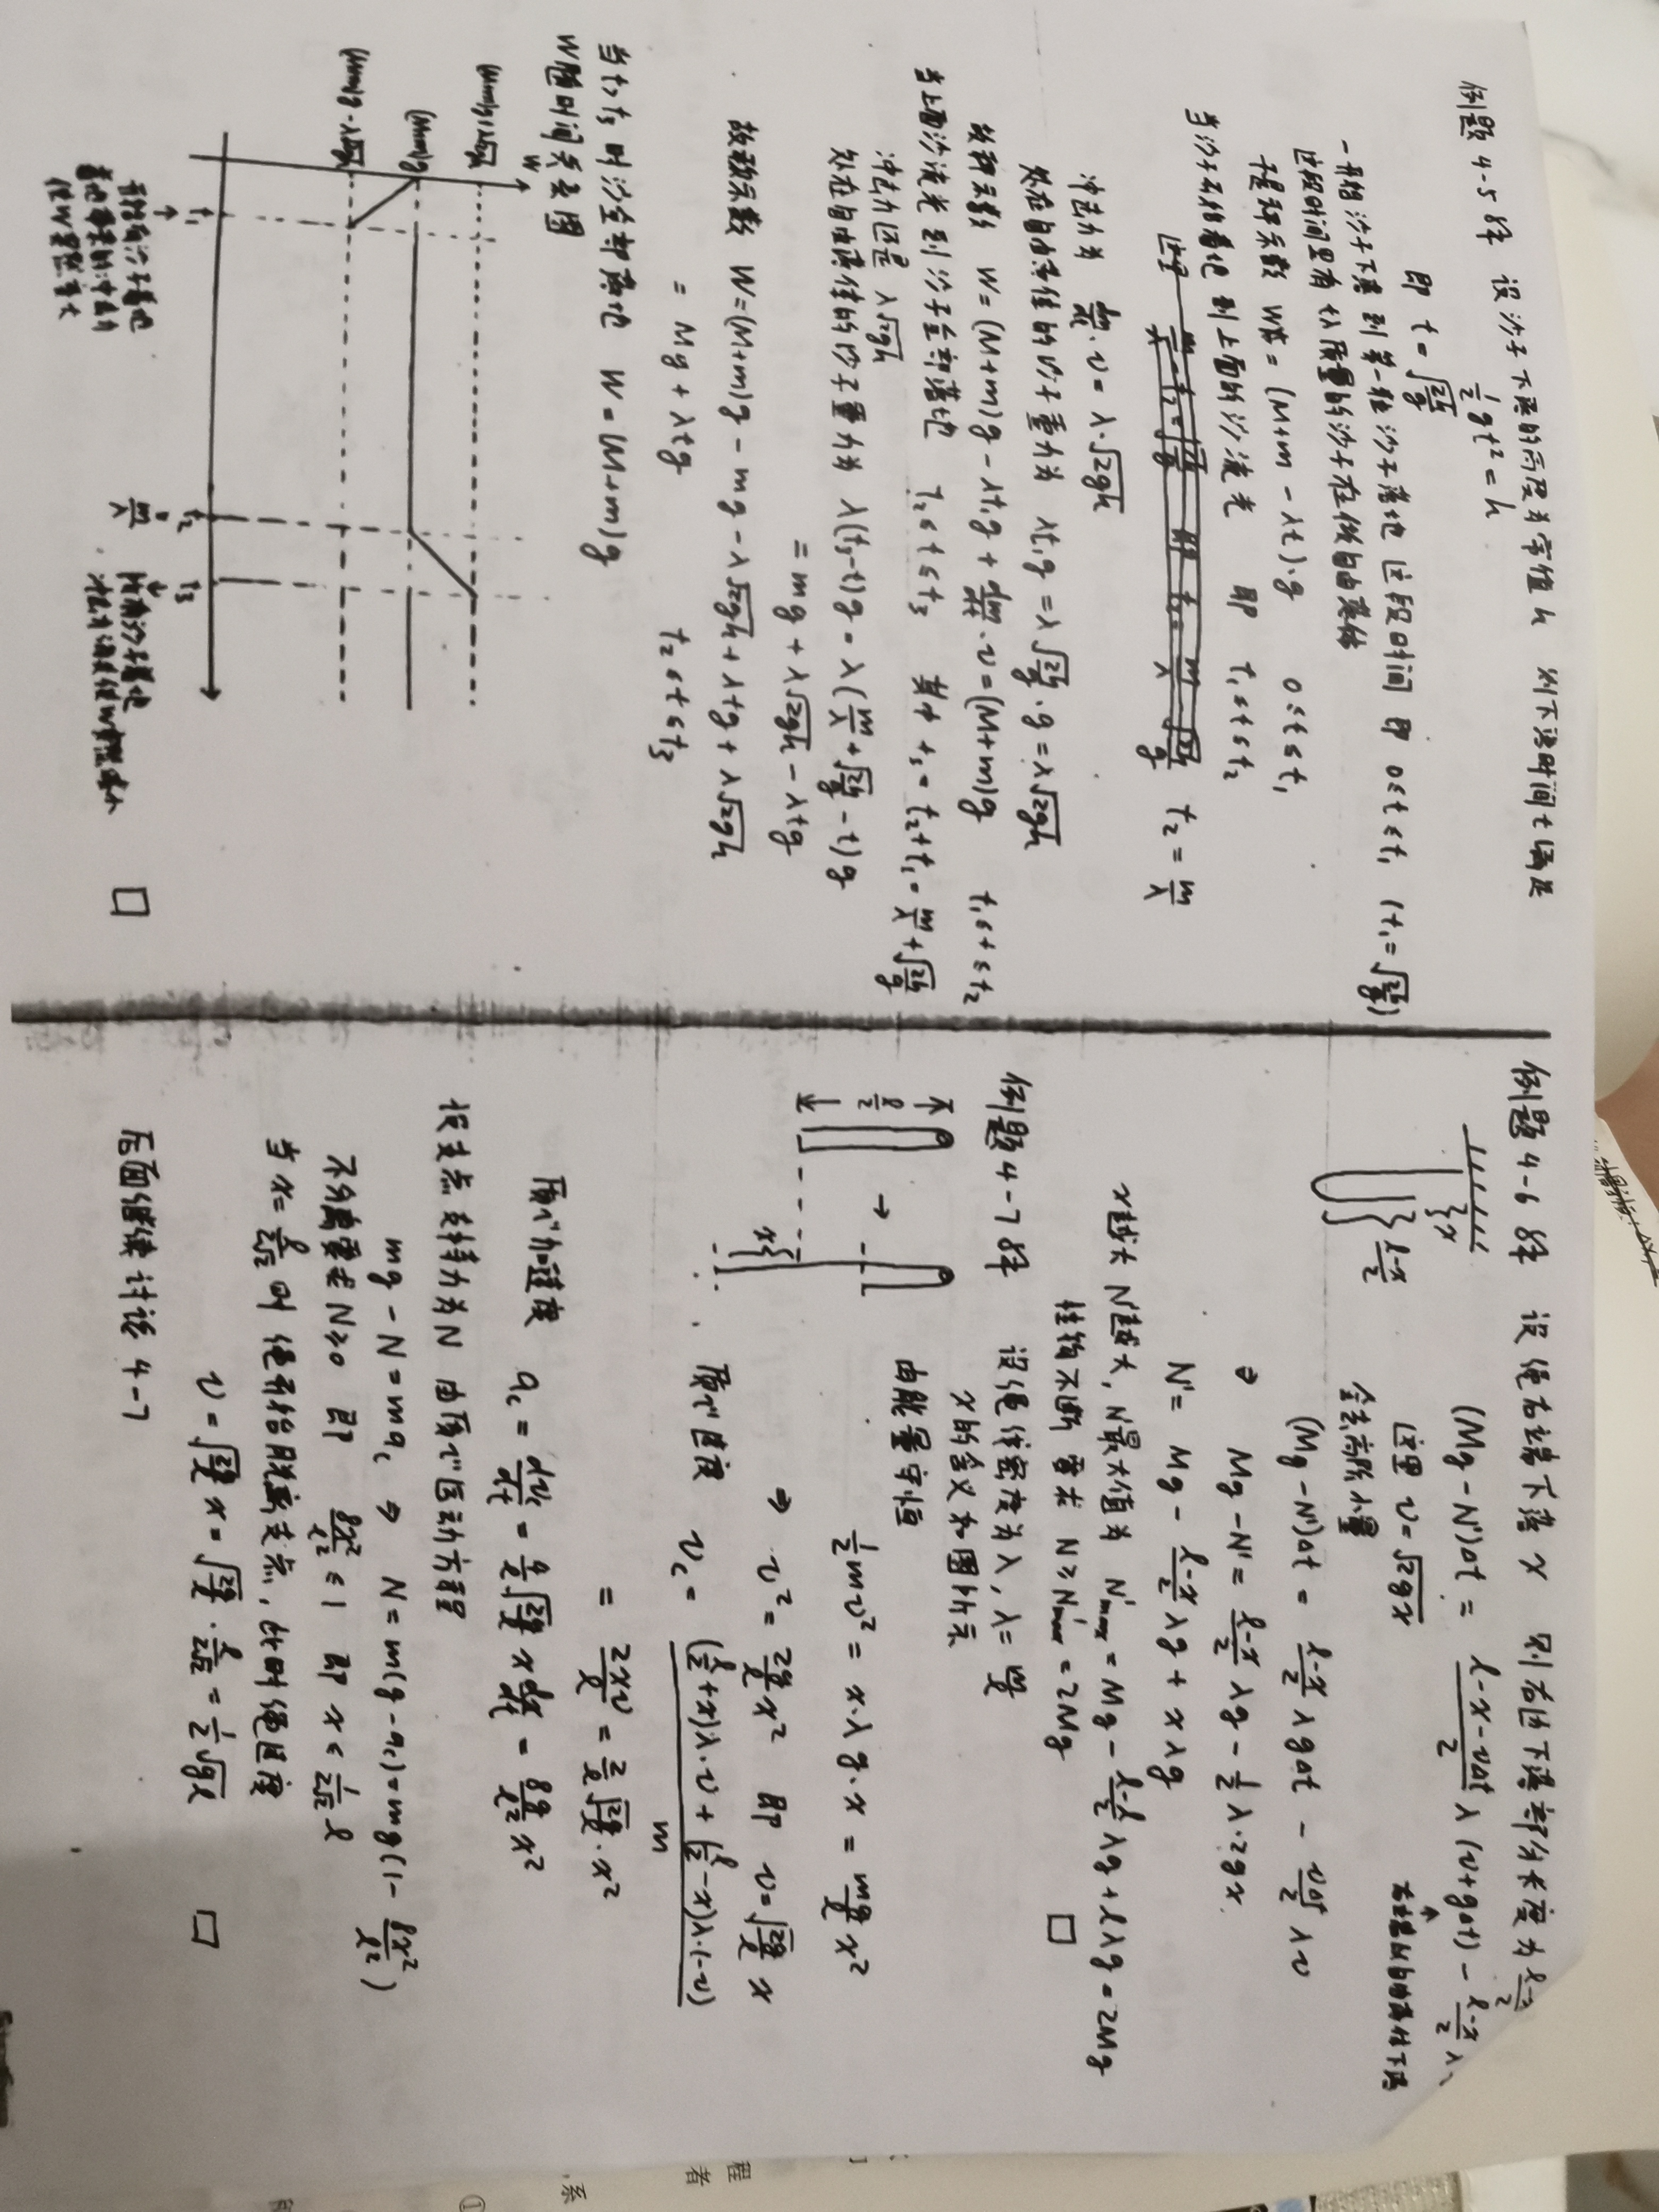 例题4-5 解 设沙子下落的高度为常值h 则下落时间t满足
½gt²=h
即 t=√(2h/g)
一开始沙子下落 到第一粒沙子落地 这段时间 即 0≤t≤t₁ (t₁=√(2h/g))
这段时间里有 tλ质量的沙子在做自由落体
于是秤示数 W = (M+m-λt)·g 0≤t≤t₁
当沙子开始着地 到上面的沙流光 即 t₁≤t≤t₂
t₂=m/λ
冲击力为 dm/dt·v=λ·√(2gh)
处在自由落体的沙子重力为 λt₁g=λ√(2h/g)·g=λ√(2gh)
故秤示数 W=(M+m)g-λt₁g+dm/dt·v=(M+m)g t₁≤t≤t₂
当上面沙流光 到沙子全部落地 t₂≤t≤t₃ 其中 t₃=t₂+t₁=m/λ+√(2h/g)
冲击力还是 λ√(2gh)
处在自由落体的沙子重力为 λ(t₃-t)g=λ(m/λ+√(2h/g)-t)g
=mg+λ√(2gh)-λtg
故秤示数 W=(M+m)g-mg-λ√(2gh)+λtg+λ√(2gh)
=Mg+λtg t₂≤t≤t₃
当t>t₃ 时沙全部落地 W=(M+m)g
W随时间关系图
W
(M+m)g+λ√(2gh)
(M+m)g
(M+m)g-λ√(2gh)
t₁
t₂
t₃
m/λ
开始有沙子着地
着地带来的冲击力
使W显示变大
所有沙子着地
冲击力消失使W显示变小
□
例题4-6 解 设绳右端下落x 则右边下落部分长度为
x
(l-x)/2
(Mg-N')Δt = (l-x-vΔt)/2 λ(v+gΔt) - (l-x)/2 λ
这里 v=√(2gx)
舍去高阶小量
(Mg-N')Δt = (l-x)/2 λgΔt - vΔt/2 λv
⇒ Mg-N'=(l-x)/2 λg-½λ·2gx
N'= Mg-(l-x)/2 λg+xλg
x越大 N'越大, N'最大值为 N'max=Mg-(l-l)/2 λg+lλg=2Mg
挂钩不断 要求 N≥N'max=2Mg □
例题4-7 解 设绳线密度为λ, λ=m/l
x的含义如图所示
l/2
x
由能量守恒
½mv²=x·λg·x=mg/l x²
⇒ v²=2g/l x² 即 v=√(2g/l) x
质心速度 v_c = ((l/2+x)λ·v+(l/2-x)λ·(-v))/m
= 2xv/l=2/l √(2g/l)·x²
质心加速度 a_c=dv_c/dt=4/l √(2g/l) x dx/dt=8g/l² x²
设支点支持力为N 由质心运动方程
mg-N=ma_c ⇒ N=m(g-a_c)=mg(1-8x²/l²)
不分离要求N≥0 即 8x²/l²≤1 即 x≤1/(2√2) l
当x=l/(2√2) 时 绳开始脱离支点, 此时绳速度
v=√(2g/l) x=√(2g/l)·l/(2√2)=½√(gl) □
后面继续讨论4-7
程
者
系
①